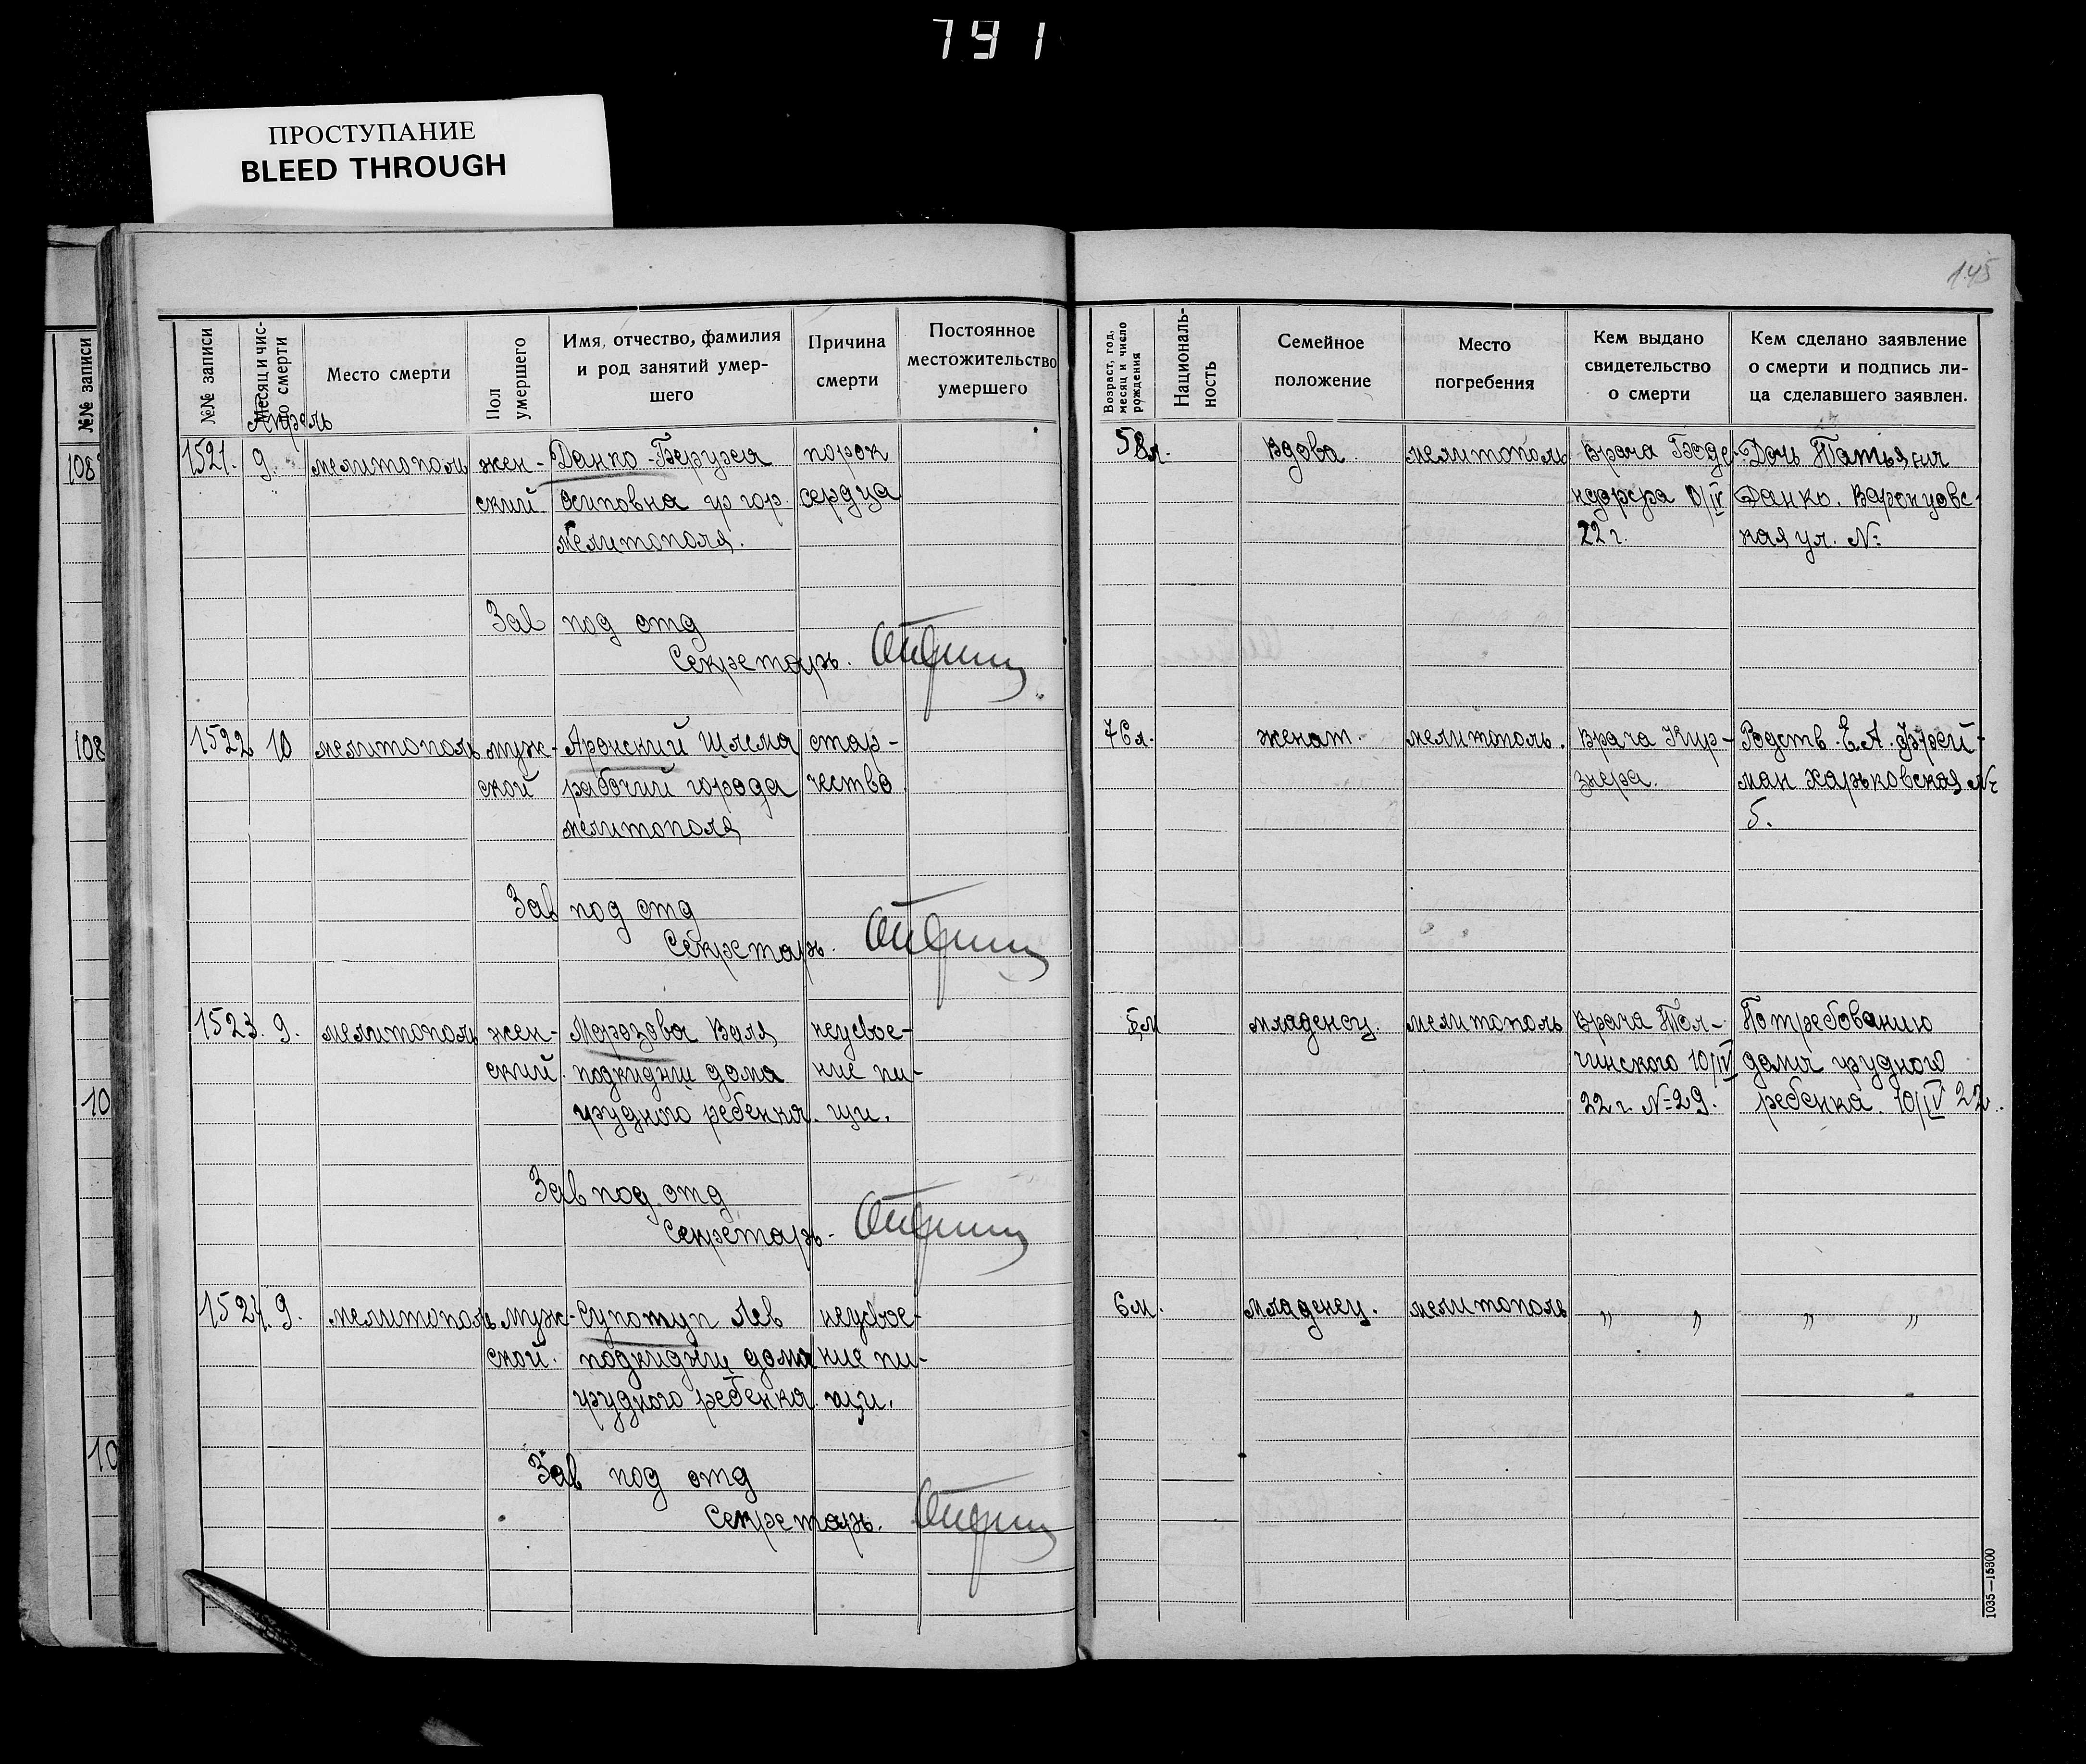 791
ПРОСТУПАНИЕ
BLEED THROUGH
145
№№ записи
№№ записи
Месяц и число смерти
Место смерти
Пол умершего
Имя, отчество, фамилия
и род занятий умер-
шего
Причина
смерти
Постоянное
местожительство
умершего
Возраст, год,
месяц и число
рождения
Националь-
ность
Семейное
положение
Место
погребения
Кем выдано
свидетельство
о смерти
Кем сделано заявление
о смерти и подпись ли-
ца сделавшего заявлен.
Апрель
108
1521. 9. мелитополь жен- Данко - порок 58л. Вдова мелитополь врача Дочь Татьяна
ский. Осиповна гр гор. сердца /IV Данко. Варонцовс-
мелитополя. 22 г. кая ул. №:
Зав под отд
Секретарь.
108
1522 10 мелитополь муж- Аронский Шлема стар- 76л. женат. мелитополь. врача Кир- Родств. Е.А. Фрей-
ской рабочий города чество знера. ман Харьковская №
мелитополя 5.
Зав под отд
Секретарь.
10
1523. 9. мелитополь жен- Морозова Валя неусвое- 5м младенец. мелитополь врача Тол- По требованию
ский. подкидыш дома ние пи- чинского 10/IV дома грудного
грудного ребенка. щи. 22 г. № 29. ребенка. 10/IV 22.
Зав под отд
Секретарь.
10
1524. 9. мелитополь муж- Лев неусвое- 6м. младенец. мелитополь „ „ „ „
ской. подкидыш дома ние пи-
грудного ребенка. щи.
Зав под отд
Секретарь.
1035—15300